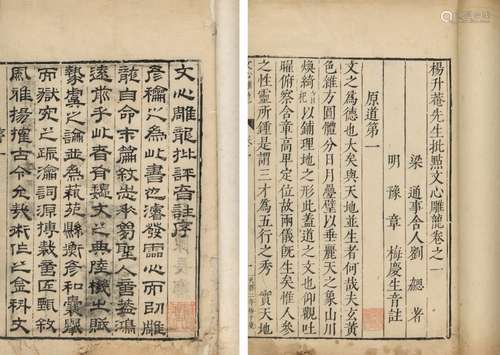 楊升菴先生批點文心雕龍卷之一
梁 通事舍人劉勰 著
明 豫章 梅慶生音註
原道第一
文之為德也大矣與天地並生者何哉夫玄黃
色雜方圓體分日月疊璧以垂麗天之象山川
煥綺以鋪理地之形此蓋道之文也仰觀吐
曜俯察含章高卑定位故兩儀既生矣惟人參
之性靈所鍾是謂三才為五行之秀 實天地
文心雕龍批評音註序
彥龢之為此書也濬發靈心而以雕
龍自命末篇敘志垂夢聖人意益鴻
遠前乎此者有魏文之典陸機之賦
摯虞之論並為藝苑縣衡彥和囊舉
而獄究之疏瀹詞源博裁意匠甄敘
風雅揚搉古今允哉術作之金科文